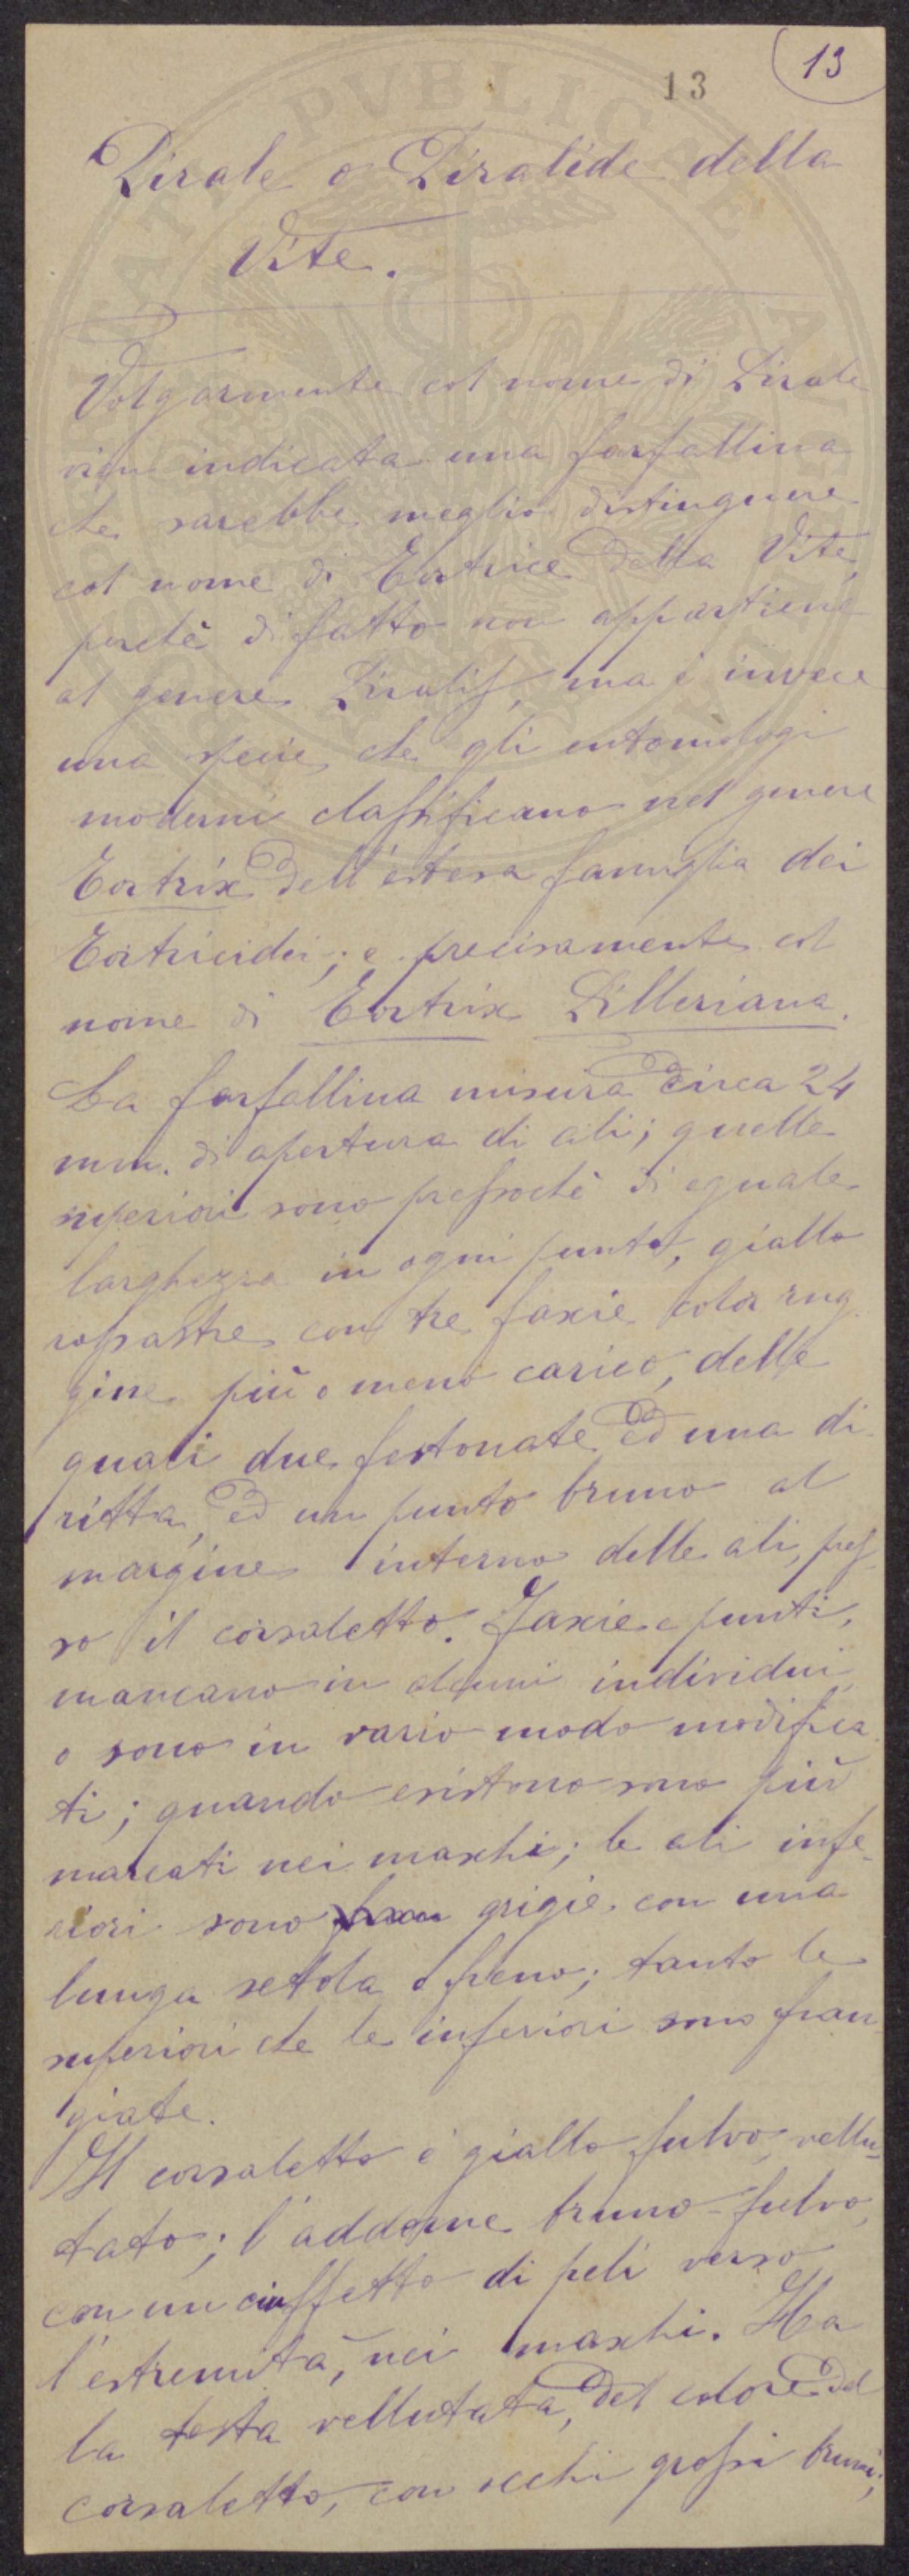 13
13
Pirale o Piralide della
Vite.
Volgarmente col nome di Pirale
vien indicata una farfallina
che sarebbe meglio distinguere
col nome di Tortrice della Vite,
perchè di fatto non appartiene
al genere Piralis, ma è invece
una specie che gli entomologi
moderni classificano nel genere
Tortrix dell'estesa famiglia dei
Tortricidei; e precisamente col
nome di Tortrix Pilleriana.
La farfallina misura circa 24
mm. di apertura di ali; quelle
superiori sono pressochè di eguale
larghezza in ogni punto, giallo
rossastre con tre fascie color rug
gine più o meno carico, delle
quali due festonate ed una di
ritta, ed un punto bruno al
margine interno delle ali, pres
so il corsaletto. Fascie e punti,
mancano in alcuni individui
o sono in vario modo modifica
ti; quando esistono sono più
marcati nei maschi; le ali infe-
riori sono grigie con una
lunga setola o freno; tanto le
superiori che le inferiori sono fran
giate.
Il corsaletto è giallo fulvo, vellu-
tato; l'addome bruno-fulvo,
con un ciuffetto di peli verso
l'estremità, nei maschi. Ha
la testa vellutata, del colore del
corsaletto, con occhi grossi bruni;